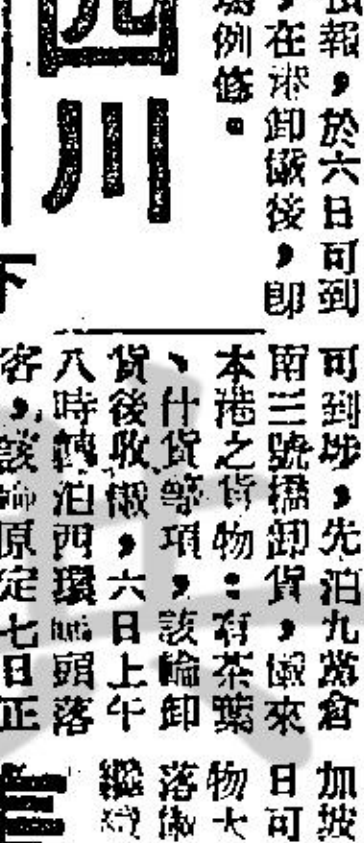 報，於六日可到
，在港卸儎後，即
例修。
四川
下
可到埗，先泊九龍倉
南三號橋卸貨，儎來
本港之貨物：有茶葉
、什貨等項，該輪卸
貨後收儎，六日上午
八時轉泊西環碼頭落
客，該輪原定七日正
加坡
日可
物大
落儎
繼續